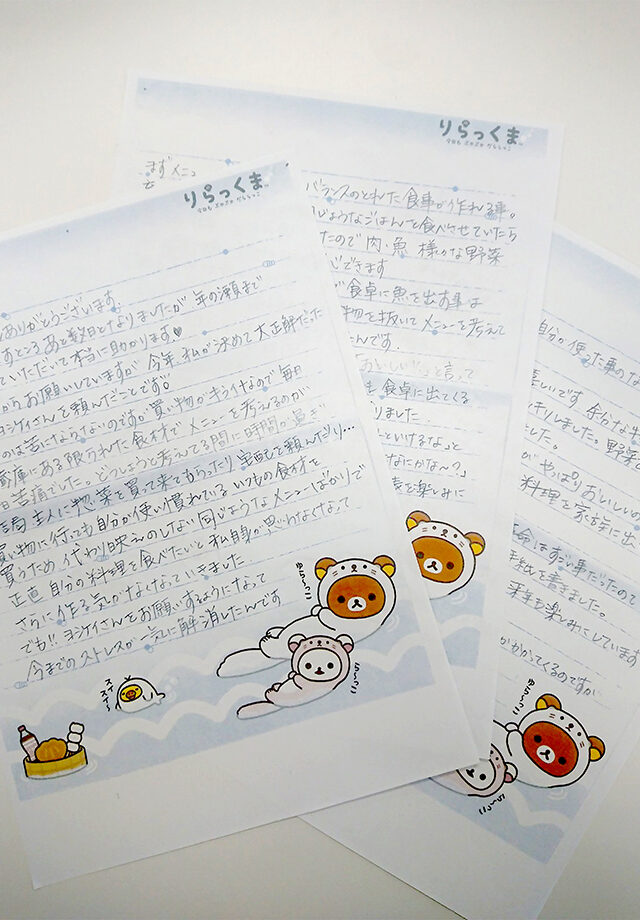 りらっくま
今日も ゴロゴロ だららっこ
ありがとうございます。
すところ あと数日となりましたが 年の瀬まで
ていただいて本当に助かります♥
からお願いしていますが 今年 私が決めて 大正解だった
ヨシケイさんを頼んだことです。
のは苦にならないのですが 買い物がキライなので 毎日
蔵庫にある限られた食材で メニューを考えるのが
苦痛でした。どうしようと考えてる間に時間が過ぎ
局 主人に惣菜を買って来てもらったり 宅配を頼んだり…
買い物に行っても自分が使い慣れている いつもの食材を
買うため 代わり映えのしない 同じようなメニューばかりで
正直 自分の料理を食べたいと 私自身が思わなくなって
さらに 作る気がなくなっていきました
でも!! ヨシケイさんをお願いするようになって
今までのストレスが 一気に解消したんです
ゆら〜っこ
ら〜っこ
スイスイ〜
りらっくま
今日も ゴロゴロ だららっこ
まずメニュ
バランスのとれた食事が作れる事。
じようなごはんを食べさせていたら
たので 肉・魚 様々な野菜
できます
食卓に魚を出す事は
物を抜いてメニューを考えて
んです。
おいしい
と言って
食卓に出てくる
りました
といけるな」と
なにかな〜?」
を楽しみに
自分が使った事の
しいです
キルしました。野菜
した。
が やっぱり おいしいの
料理を家族に出
命は すごい事だったので
手紙を書きました。
来年も楽しみにしています
かかってくるのですが
ゆら〜っこ
ら〜っこ